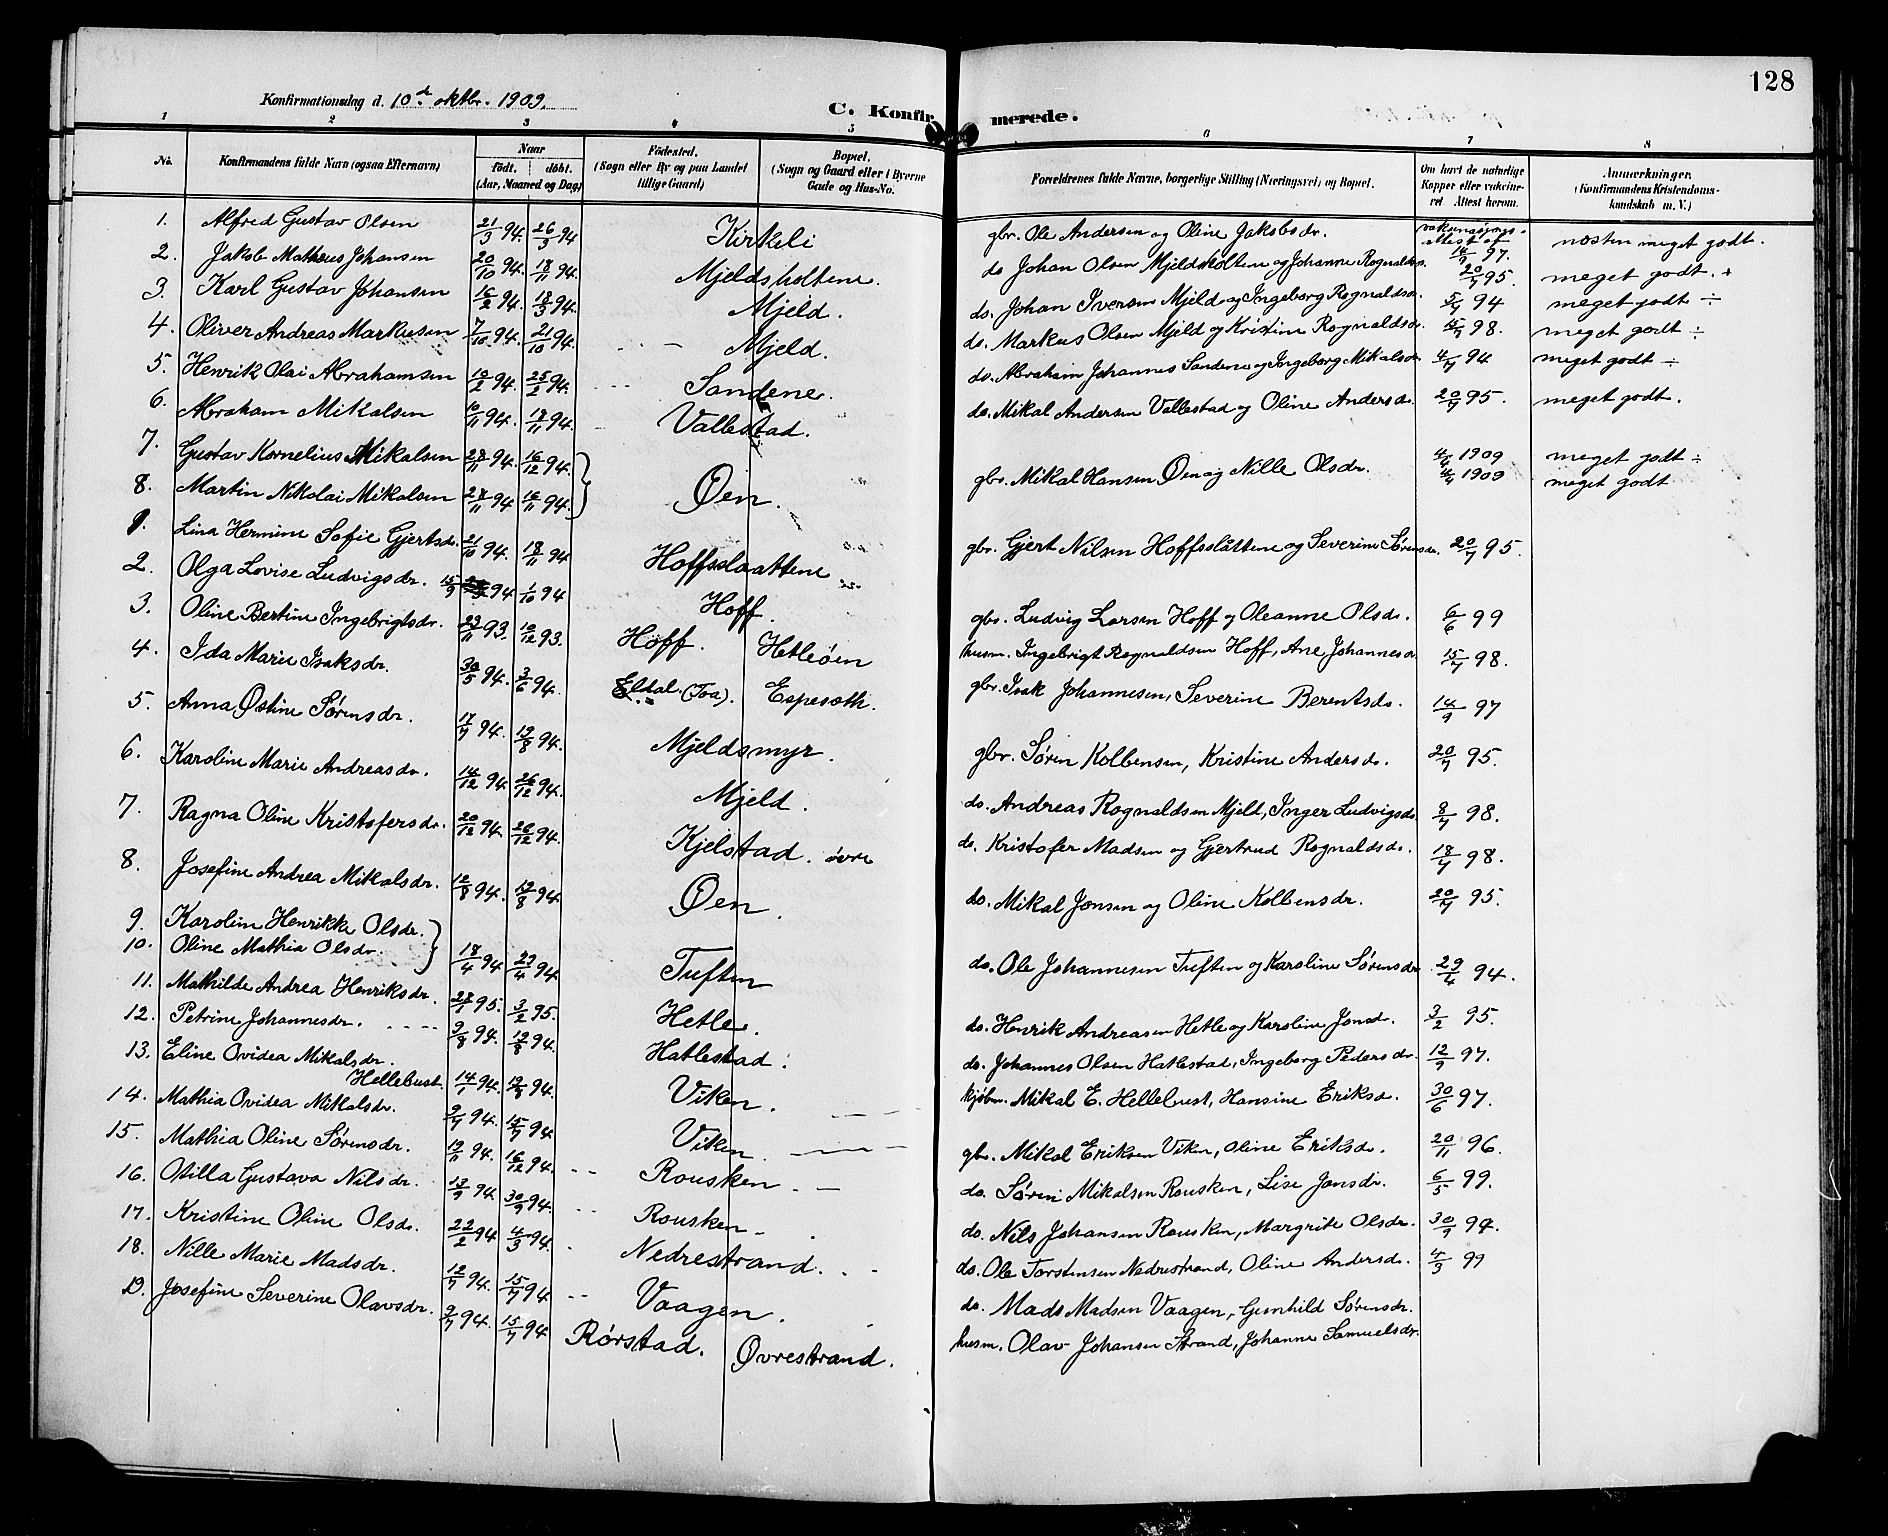 128
Konfirmationsdag d. 10de oktbr. 1909.
C. Konfirmerede.
1 2 3 4 5 6 7 8
No. Konfirmandens fulde Navn (ogsaa Efternavn) Naar født. døbt. (Aar, Maaned og Dag) Födested. (Sogn eller By og paa Landet tillige Gaard) Bopæl. (Sogn og Gaard eller i Byerne Gade og Hus-No. Forældrenes fulde Navne, borgerlige Stilling (Næringsvei) og Bopæl. Om havt de naturlige Kopper eller vakcineret. Attest herom. Anmærkninger. (Konfirmandens Kristendomskundskab m. V.)
1. Alfred Gustav Olsen 21/3 94. 26/3 94 Kirkeli gbr. Ole Andersen og Oline Jaksbsdr. vakcinasjonsattest af 14/9 97. næsten meget godt.
2. Jakob Matheus Johansen 20/10 94. 18/11 94. Mjeldsholtene. do Johan Olsen Mjeldsholtene og Johanne Rognaldsdr. 20/7 95. meget godt. +
3. Karl Gustav Johansen 16/2 94. 18/3 94. Mjeld. do. Johan Iversen Mjeld og Ingeborg Rognaldsdr. 5/7 94 meget godt ÷
4. Oliver Andreas Markusen 7/10 94. 21/10 94. Mjeld. do. Markus Olsen Mjeld og Kristine Rognaldsdr. 15/7 98. meget godt ÷
5. Henrik Olai Abrahamsen 10/2 94. 25/2 94. Sandene. do. Abraham Johannes Sandene og Ingeborg Mikalsdr. 4/7 94 meget godt ÷
6. Abraham Mikalsen 10/11 94. 18/11 94. Vallestad. do. Mikal Andersen Vallestad og Oline Andersdr. 20/7 95. meget godt.
7. Gustav Kornelius Mikalsen 28/11 94. 16/12 94. Øen. gbr. Mikal Hansen Øen og Nille Olsdr. 4/4 1909 meget godt ÷
8. Martin Nikolai Mikalsen 28/11 94 16/11 94. 4/4 1909 meget godt
1. Lina Hermine Sofie Gjertsdr. 21/10 94. 18/11 94 Hoffsslaattene gbr. Gjert Nilsen Hoffsslåttene og Severine Sørensdr. 20/7 95.
2. Olga Lovise Ludvigsdr. 15/9 94 1/10 94 Hoff. gbr. Ludvig Larsen Hoff og Oleanne Olsdr. 6/6 99
3. Oline Bertine Ingebrigtsdr. 23/11 93. 10/12 93. Hoff. Hetleøen husm. Ingebrigt Rognaldsen Hoff, Ane Johannesdr 15/7 98.
4. Ida Marie Isaksdr. 30/5 94. 3/6 94. Eldal. (Joa). Espeseth. gbr. Isak Johannesen, Severine Berentsdr. 14/9 97
5. Anna Østine Sørensdr. 17/7 94. 19/8 94. Mjeldsmyr. gbr. Søren Kolbensen, Kristine Andersdr. 20/7 95.
6. Karoline Marie Andreasdr. 14/12 94 26/12 94. Mjeld. do. Andreas Rognaldsen Mjeld, Inger Ludvigsdr. 8/7 98.
7. Ragna Oline Kristofersdr. 20/12 94. 26/12 94. Kjelstad. övre do. Kristofer Madsen og Gjertrud Rognaldsdr. 18/7 98.
8. Josefine Andrea Mikalsdr. 12/8 94. 19/8 94. Øen. do. Mikal Jonsen og Oline Kolbensdr. 20/7 95.
9. Karoline Henrikke Olsdr.
10. Oline Mathia Olsdr. 18/4 94 29/4 94. Tuften do. Ole Johannesen Tuften og Karoline Sørensdr. 29/4 94.
11. Mathilde Andrea Henriksdr. 27/1 95. 3/2 95. Hetle. do. Henrik Andreasen Hetle og Karoline Jonsdr. 3/2 95.
12. Petrine Johannesdr. 9/8 94. 19/8 94. Hatlestad. do. Johannes Olsen Hatlestad, Ingeborg Pedersdr. 12/9 97.
13. Eline Ovidea Mikalsdr.
Hellebust. 14/1 94. 19/8 94. Viken. kjøbm. Mikal E. Hellebust, Hansine Eriksdr. 30/6 97.
14. Mathia Ovidea Mikalsdr. 9/7 94. 15/7 94 Viken. gbr. Mikal Eriksen Viken, Oline Eriksdr. 20/11 96.
15. Mathia Oline Sørensdr. 19/11 94. 16/12 94. Rousken do. Søren Mikalsen Rousken, Lise Jonsdr. 6/5 99.
16. Otilla Gustava Nilsdr. 13/9 94 30/9 94. Rousken do. Nils Johansen Rousken, Margrite Olsdr. 30/9 94.
17. Kristine Oline Olsdr. 22/2 94 4/3 94. Nedrestrand. do. Ole Torstensen Nedrestrand, Oline Andersdr. 4/3 99
18. Nille Marie Madsdr. 12/7 94. 15/7 94 Vaagen. do. Mads Madsen Vaagen, Gunhild Sørensdr.
19. Josefine Severine Olavsdr. 9/7 94. 15/7 94 Rörstad. Øvrestrand. husm. Olav Johansen Strand, Johanne Samuelsdr.